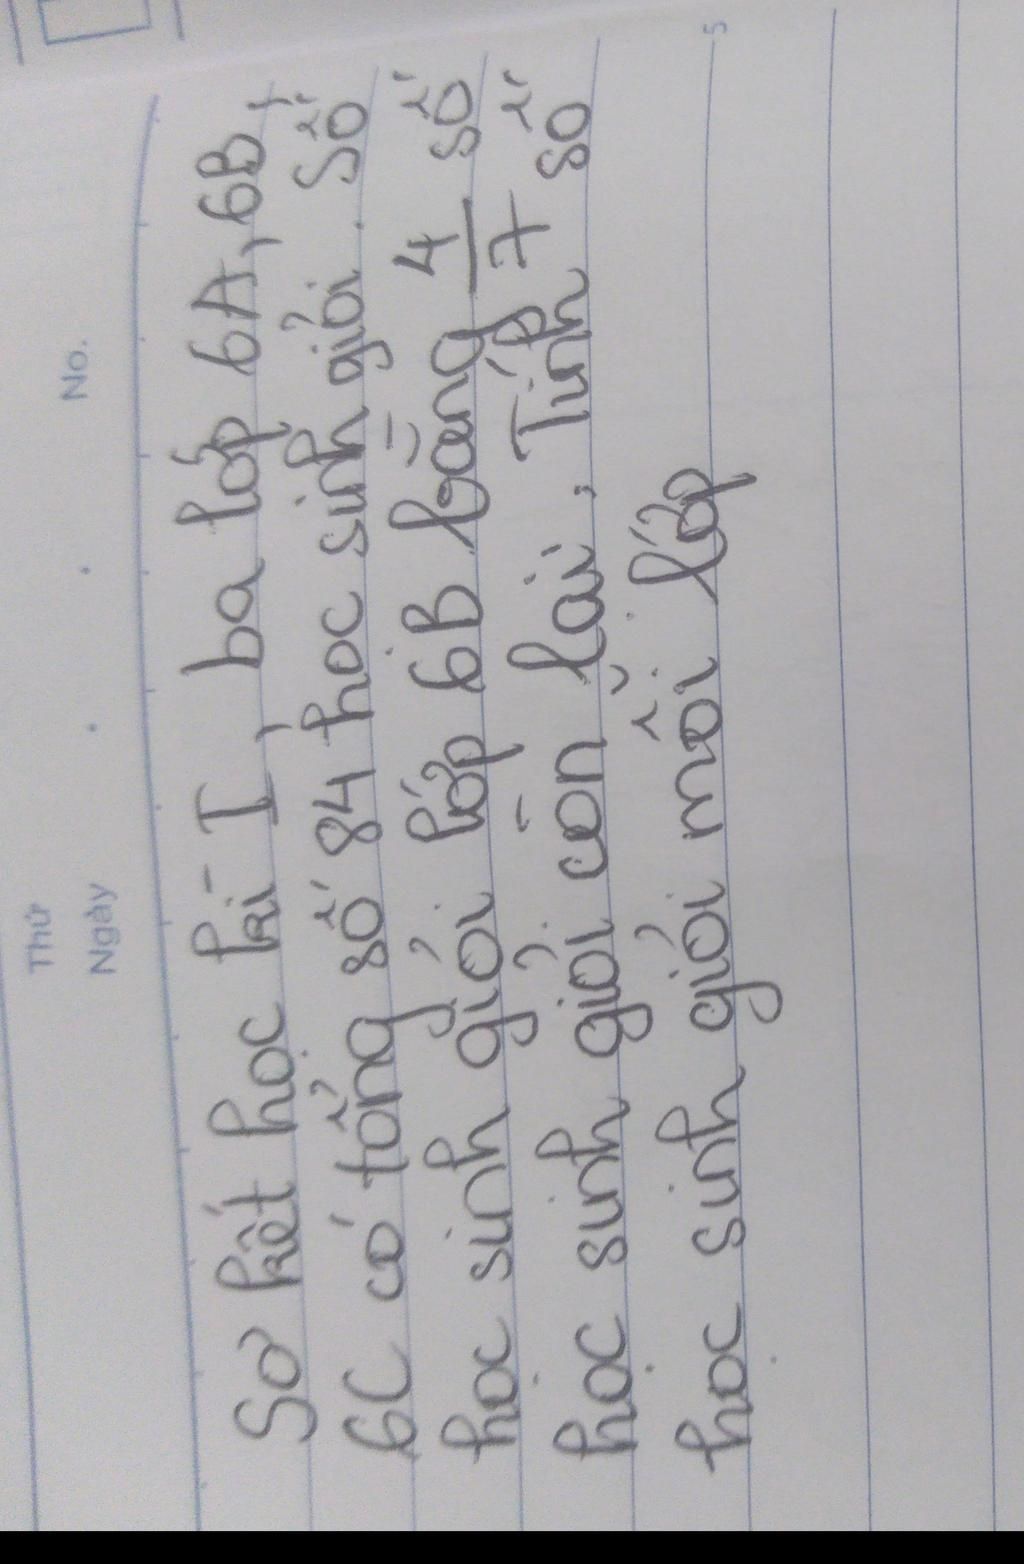 Thứ
Ngày
No.
Sơ kết học kì I, ba lớp 6A, 6B,
6C có tổng số 84 học sinh giỏi. Số
học sinh giỏi lớp 6B bằng 4/7 số
học sinh giỏi còn lại. Tính số
học sinh giỏi mỗi lớp
5